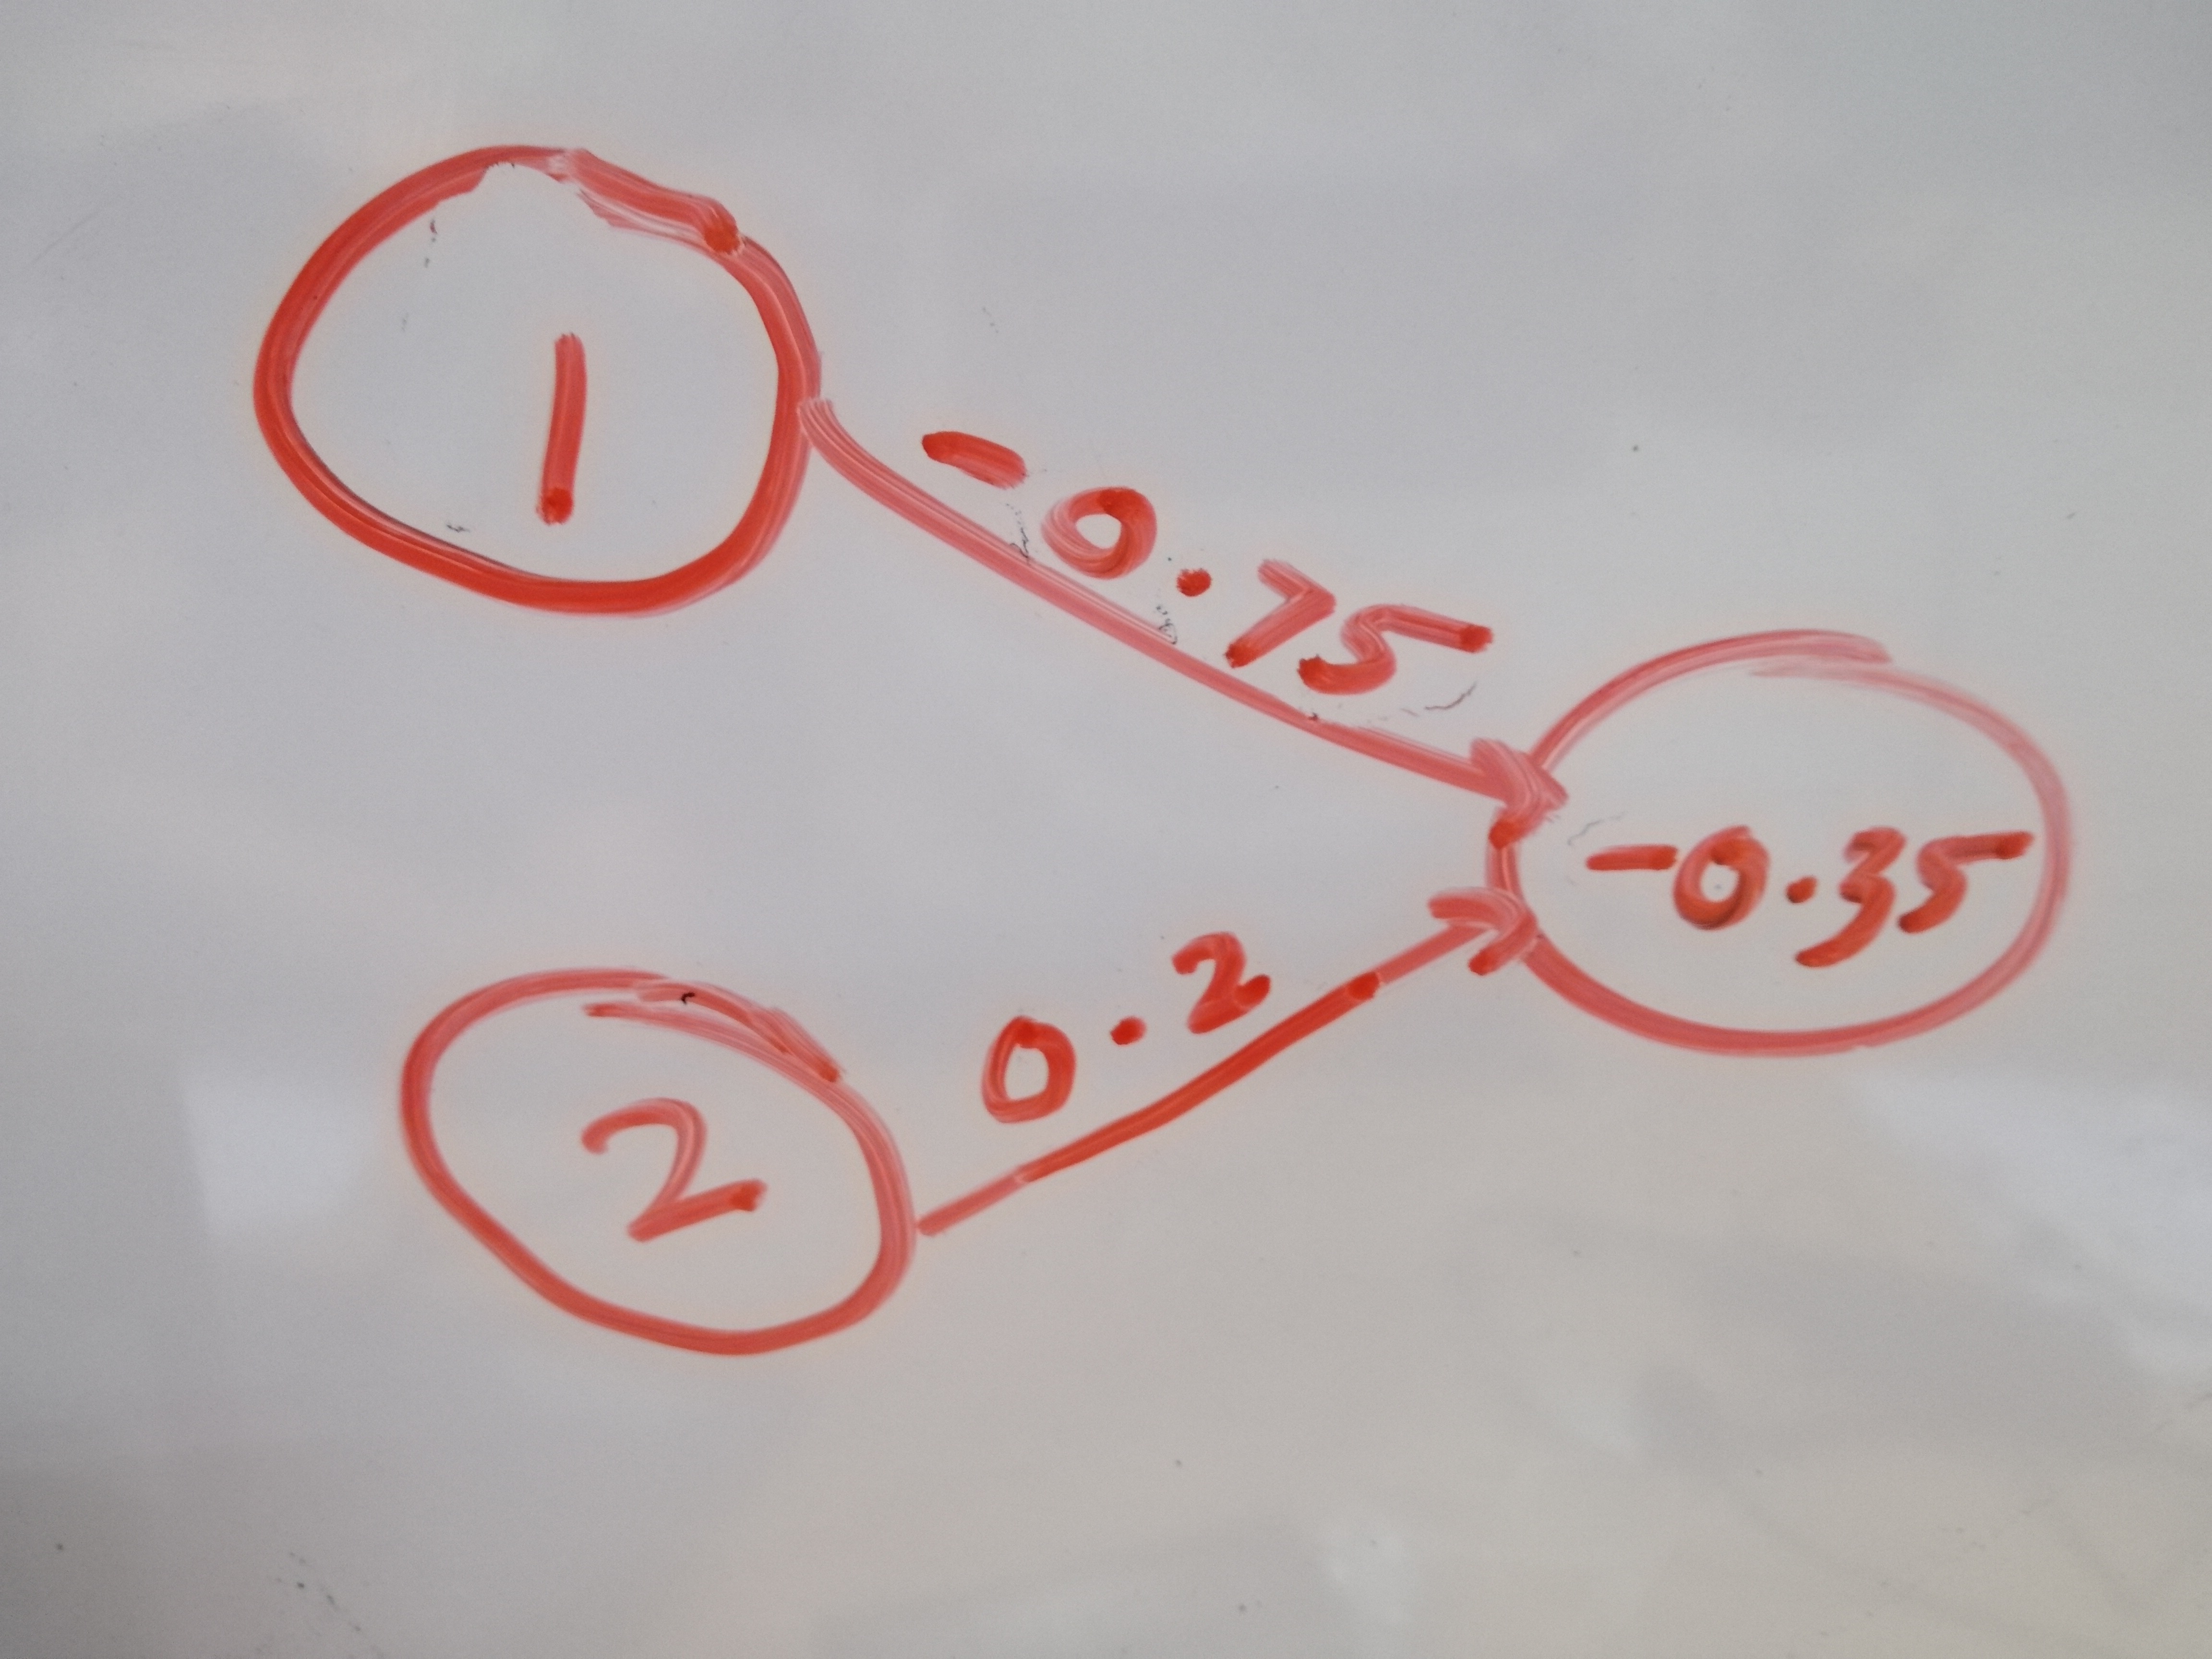 1
-0.75
-0.35
0.2
2